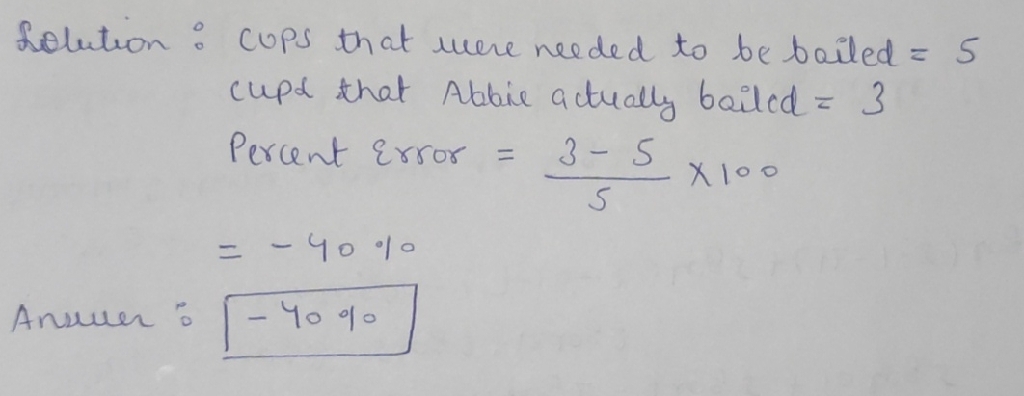 Solution : cups that were needed to be bailed = 5
cups that Abbie actually bailed = 3
Percent Error = 3 - 5 / 5 X 100
= - 40 %
Answer : - 40 %